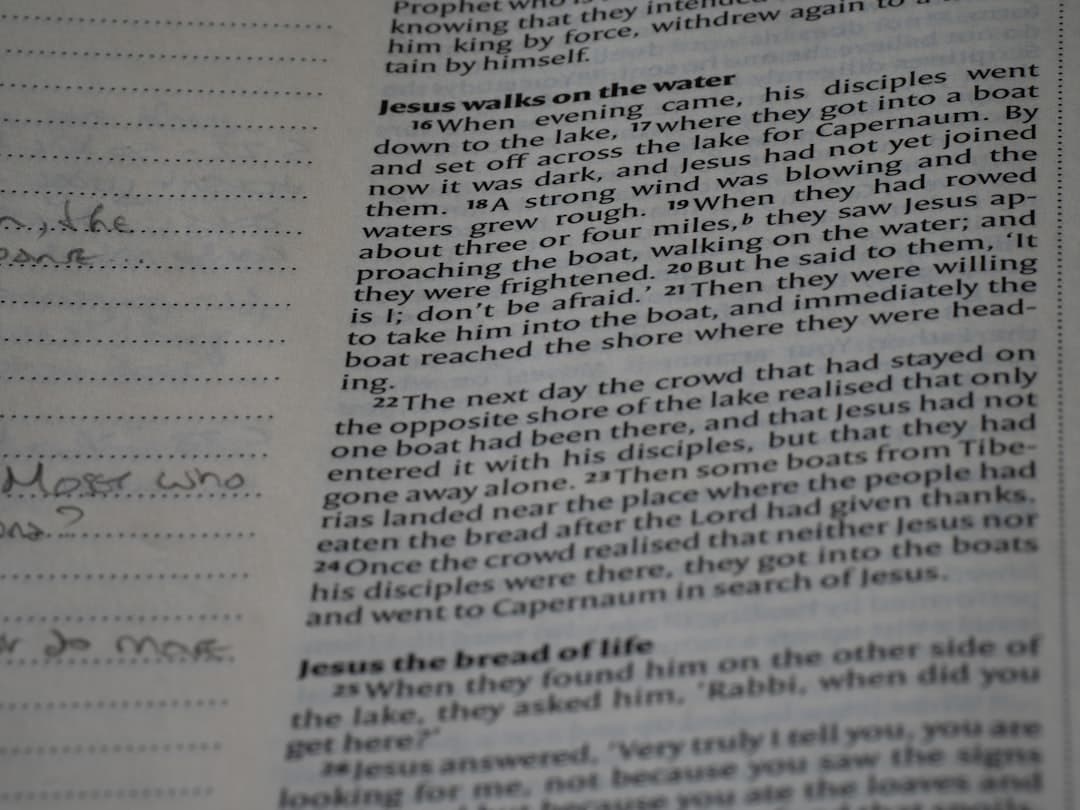 Prophet who is
knowing that they intended
him king by force, withdrew again to a
tain by himself.
Jesus walks on the water
16When evening came, his disciples went
down to the lake, 17where they got into a boat
and set off across the lake for Capernaum. By
now it was dark, and Jesus had not yet joined
them. 18A strong wind was blowing and the
waters grew rough. 19When they had rowed
about three or four miles,b they saw Jesus ap-
proaching the boat, walking on the water; and
they were frightened. 20But he said to them, ‘It
is I; don’t be afraid.’ 21Then they were willing
to take him into the boat, and immediately the
boat reached the shore where they were head-
ing.
22The next day the crowd that had stayed on
the opposite shore of the lake realised that only
one boat had been there, and that Jesus had not
entered it with his disciples, but that they had
gone away alone. 23Then some boats from Tibe-
rias landed near the place where the people had
eaten the bread after the Lord had given thanks.
24Once the crowd realised that neither Jesus nor
his disciples were there, they got into the boats
and went to Capernaum in search of Jesus.
Jesus the bread of life
25When they found him on the other side of
the lake, they asked him, ‘Rabbi, when did you
get here?’
26Jesus answered, ‘Very truly I tell you, you are
looking for me, not because you saw the signs
because you ate the loaves and
the
who
to more